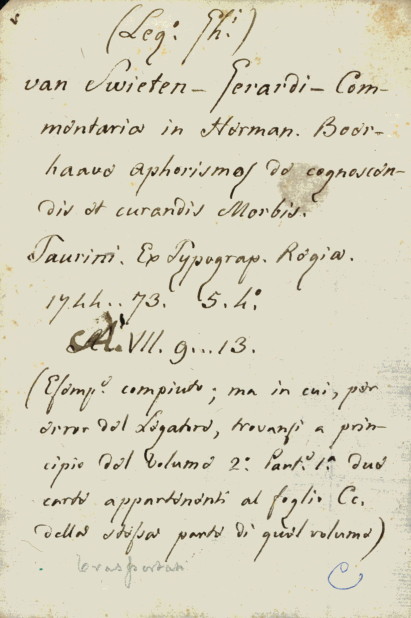 (Leg.º Gh.i)
van Swieten - Gerardi - Com-
mentaria in Herman. Boer-
haave aphorismos de cognoscen-
dis et curandis Morbis.
Taurini. Ex Typograp. Regia.
1744..73. 5. 4.º
VII. 9...13.
(Esemp.º compiuto; ma in cui, per
error del Legatore, trovansi a prin-
cipio del volume 2.º Part.e 1.a due
carte appartenenti al foglio Cc.
della stessa parte di quel volume)
trasportati
C